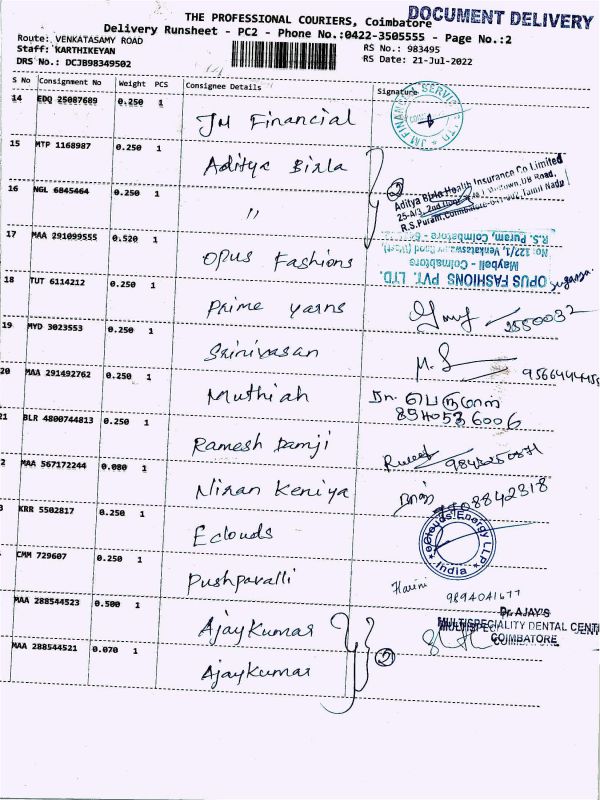 THE PROFESSIONAL COURIERS, Coimbatore
DOCUMENT DELIVERY
Delivery Runsheet - PC2 - Phone No.:0422-3505555 - Page No.:2
Route: VENKATASAMY ROAD
RS No.: 983495
Staff: KARTHIKEYAN
RS Date: 21-Jul-2022
DRS No.: DCJB98349502
S No Consignment No Weight PCS Consignee Details Signature
14 EDQ 25087689 0.250 1 JM Financial
JM FINANCIAL SERVICES LTD
15 MTP 1168987 0.250 1 Aditya Birla
Aditya Birla Health Insurance Co Limited
R.S.Puram, Coimbatore Tamil Nadu
16 NGL 6845464 0.250 1 "
2
17 MAA 291099555 0.520 1 Opus Fashions
OPUS FASHIONS PVT. LTD.
Maybell - Coimbatore
No: 127/1, Venkatasamy Road (West)
R.S. Puram, Coimbatore
18 TUT 6114212 0.250 1 Prime yarns
2550032
19 MYD 3023553 0.250 1 Srinivasan
M. S
20 MAA 291492762 0.250 1 Muthiah
8540536006
21 BLR 4800744813 0.250 1 Ramesh Damji
2 MAA 567172244 0.080 1 Niran Keniya
3 KRR 5502817 0.250 1 Eclouds
eClouds Energy LLP
India
CMM 729607 0.250 1 Pushpavalli
Harini
9894041677
MAA 288544523 0.500 1 AjayKumar
Dr. AJAY'S
MULTISPECIALITY DENTAL CENT
COIMBATORE
MAA 288544521 0.070 1 AjayKumar
2